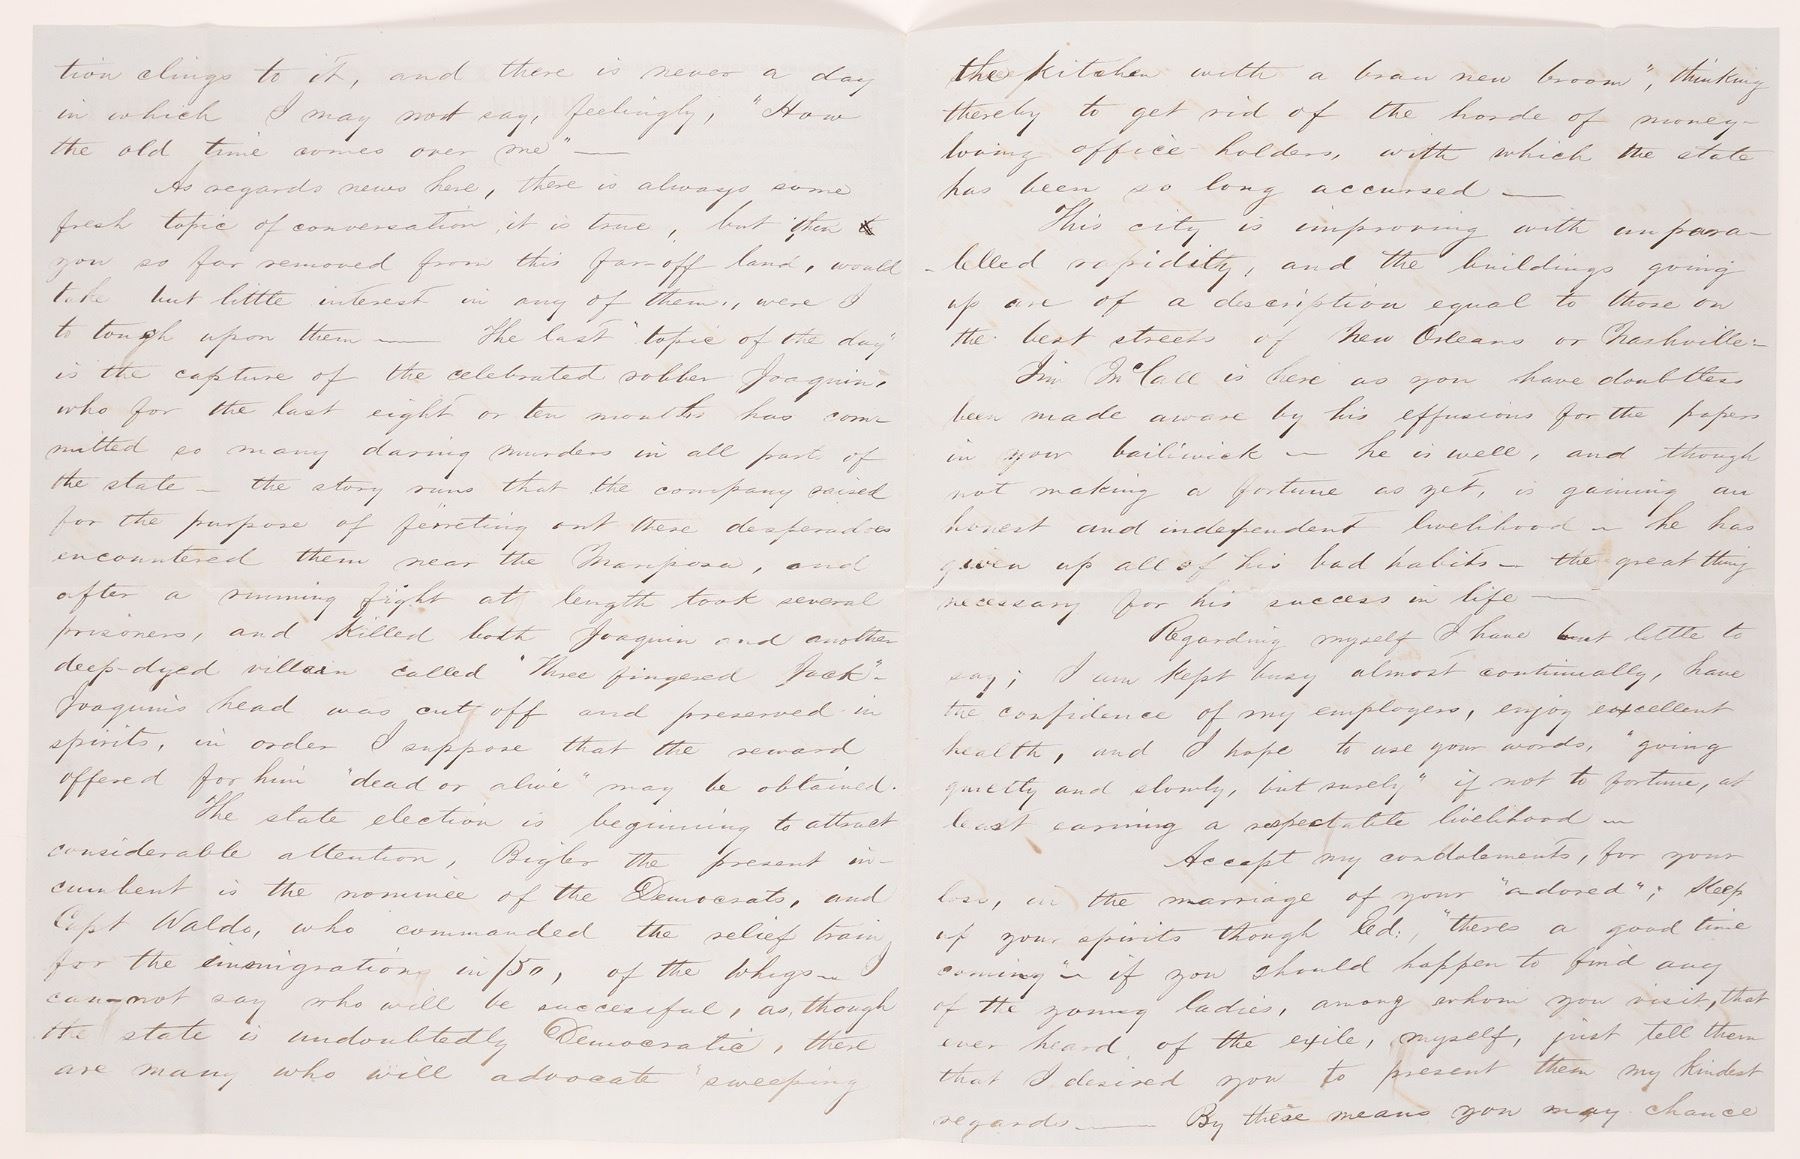 tion clings to it, and there is never a day
in which I may not say, feelingly, "How
the old time comes over me" —
As regards news here, there is always some
fresh topic of conversation, it is true, but then
you so far removed from this far-off land, would
take but little interest in any of them, were I
to touch upon them — The last "topic of the day"
is the capture of the celebrated robber Joaquin,
who for the last eight or ten months has com-
mitted so many daring murders in all parts of
the state — the story runs that the company raised
for the purpose of ferreting out these desperadoes
encountered them near the Mariposa, and
after a running fight at length took several
prisoners, and killed both Joaquin and another
deep-dyed villain called "Three fingered Jack" -
Joaquin's head was cut off and preserved in
spirits, in order I suppose that the reward
offered for him "dead or alive" may be obtained.
The state election is beginning to attract
considerable attention, Bigler the present in-
cumbent is the nominee of the Democrats, and
Capt Waldo, who commanded the relief train
for the immigration in /50, of the Whigs — I
can-not say who will be successful, as, though
the state is undoubtedly Democratic, there
are many who will advocate "sweeping
the kitchen with a bran new broom", thinking
thereby to get rid of the horde of money-
loving office-holders, with which the state
has been so long accursed —
This city is improving with unpara-
-lelled rapidity, and the buildings going
up are of a description equal to those on
the best streets of New Orleans or Nashville -
Jim McCall is here as you have doubtless
been made aware by his effusions for the papers
in your bailiwick — he is well, and though
not making a fortune as yet, is gaining an
honest and independent livelihood — he has
given up all of his bad habits — the great thing
necessary for his success in life —
Regarding myself I have but little to
say; I am kept busy almost continually, have
the confidence of my employers, enjoy excellent
health, and I hope to use your words, "going
quietly and slowly, but surely" if not to fortune, at
least earning a respectable livelihood —
Accept my condolements, for your
loss, in the marriage of your "adored"; Keep
up your spirits though Ed:, "theres a good time
coming" — if you should happen to find any
of the young ladies, among whom you visit, that
ever heard of the exile, myself, just tell them
that I desired you to present them my kindest
regards — By these means you may chance